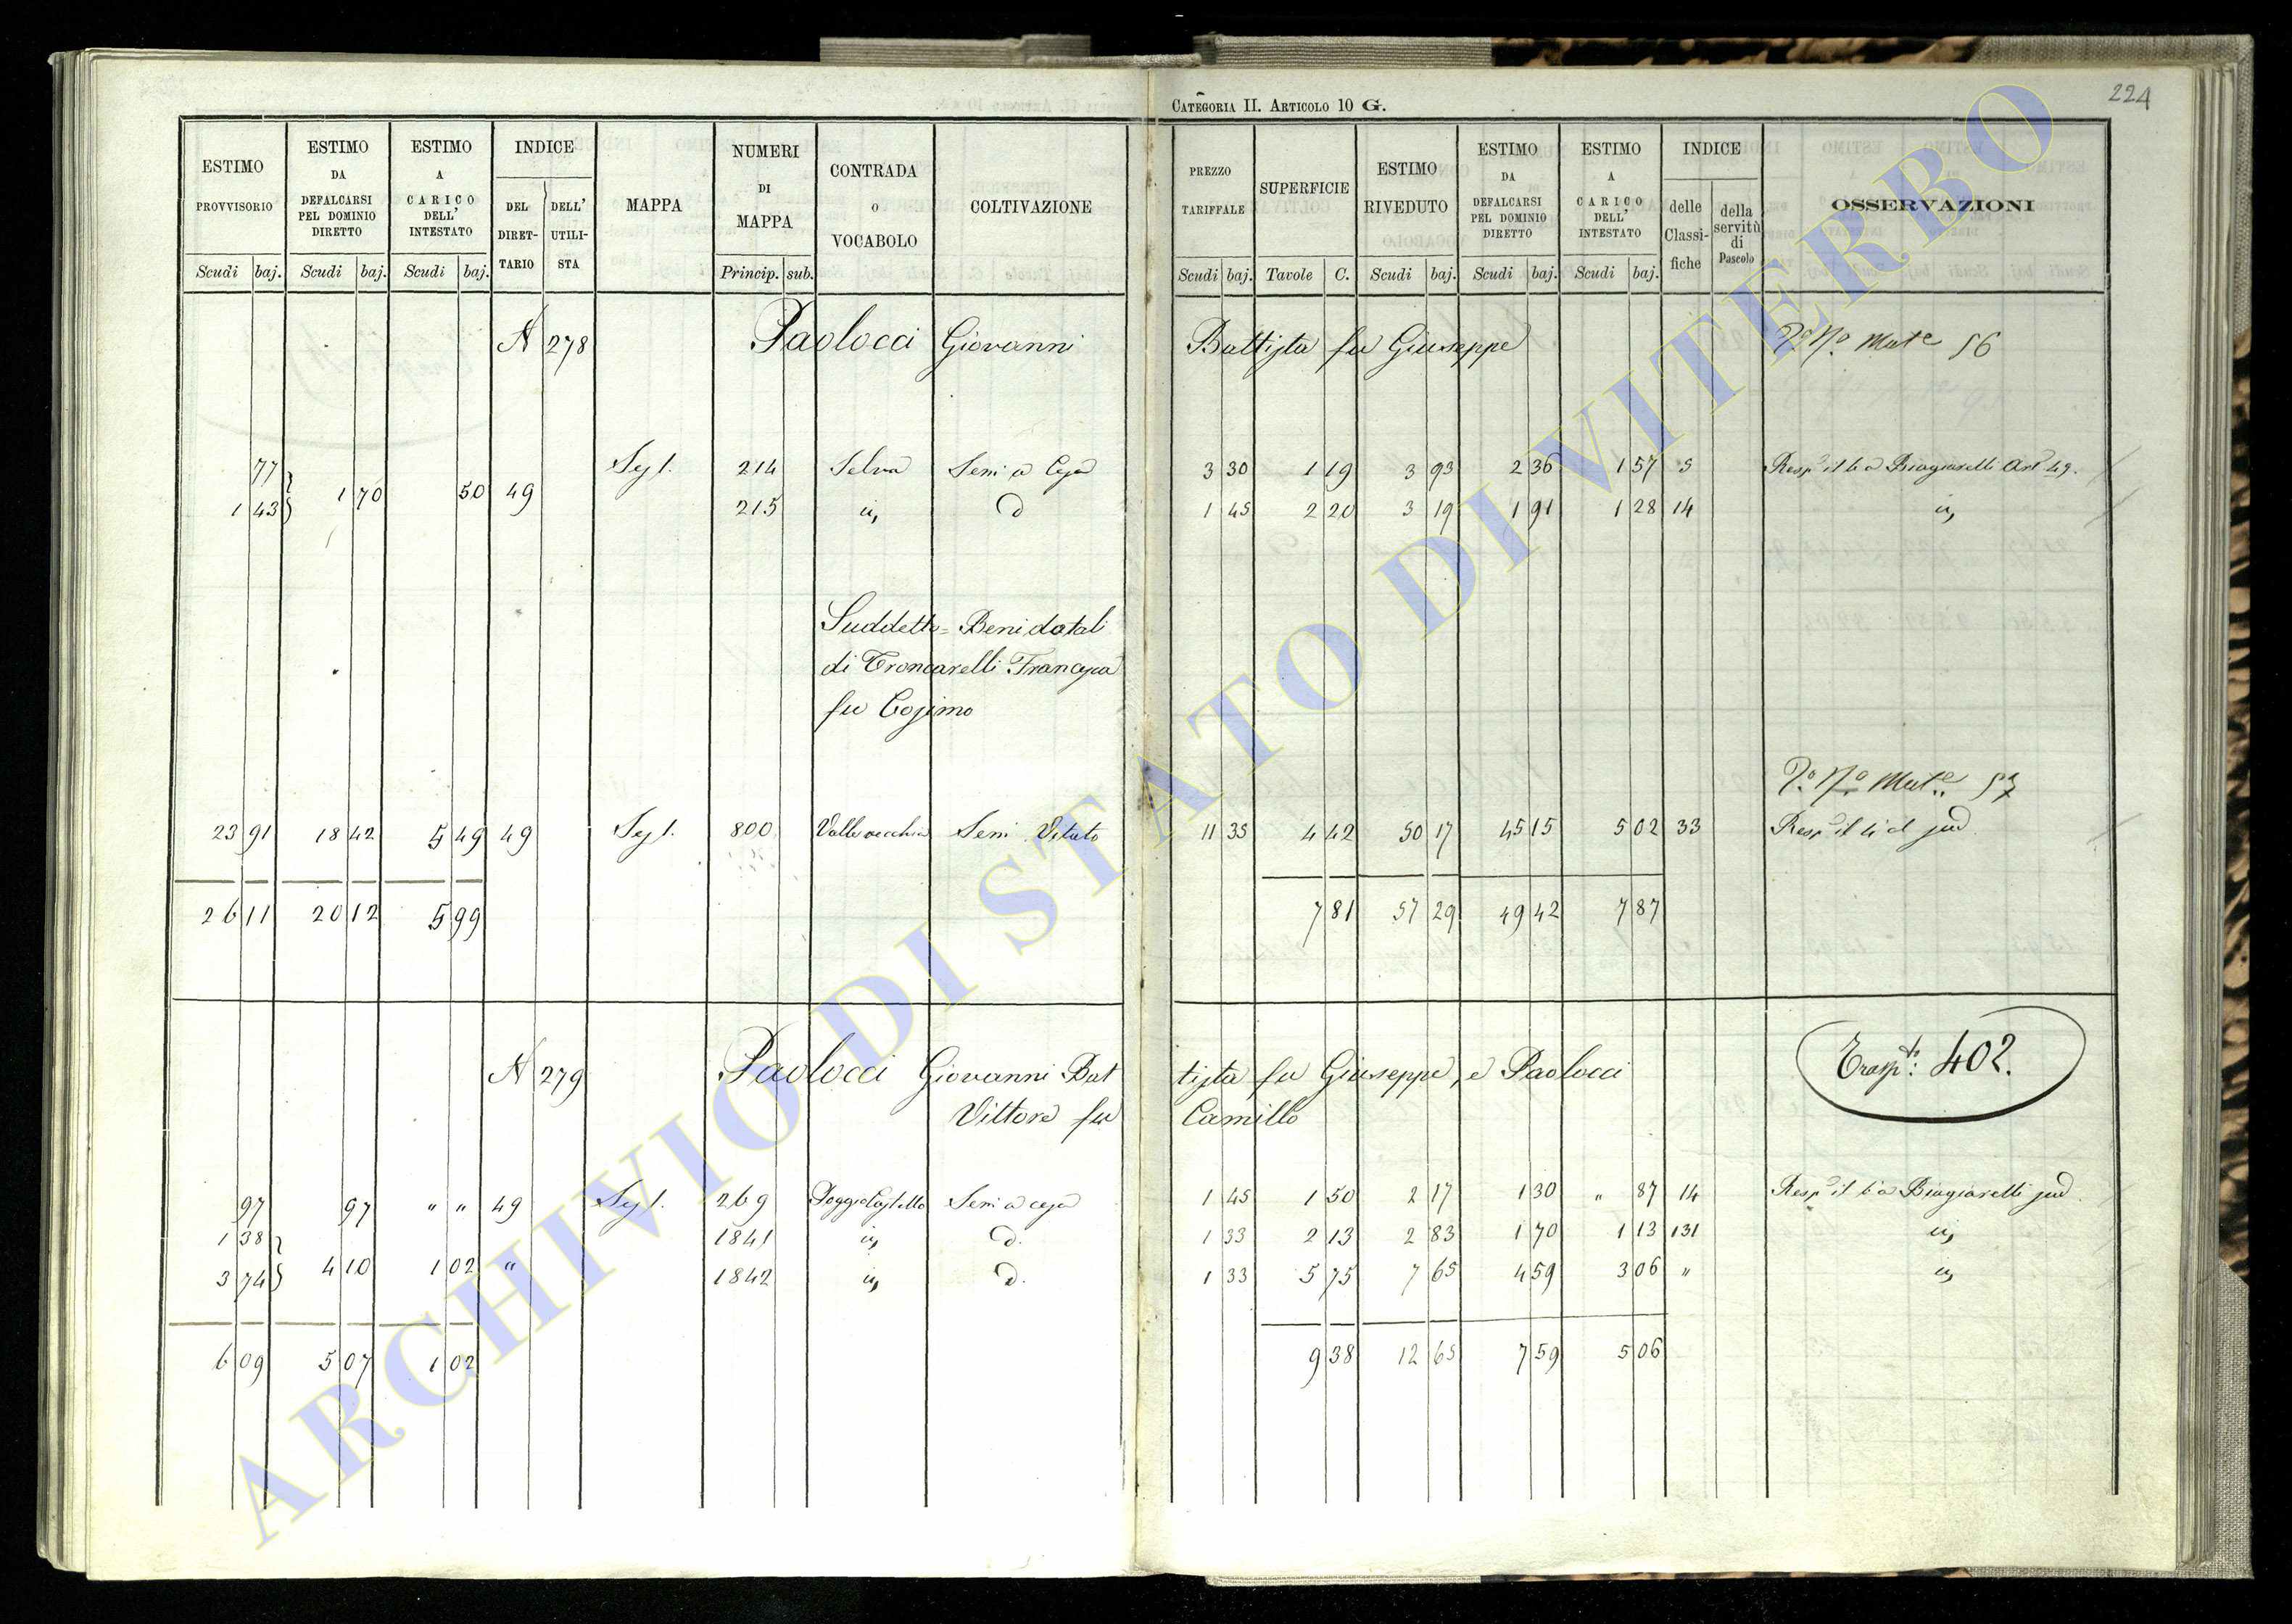 224
CATEGORIA II. ARTICOLO 10 G.
ESTIMO PROVVISORIO Scudi baj.
ESTIMO DA DEFALCARSI PEL DOMINIO DIRETTO Scudi baj.
ESTIMO A CARICO DELL' INTESTATO Scudi baj.
INDICE DEL DIRET-TARIO DELL' UTILI-STA
MAPPA
NUMERI DI MAPPA Princip. sub.
CONTRADA O VOCABOLO
COLTIVAZIONE
PREZZO TARIFFALE Scudi baj.
SUPERFICIE Tavole C.
ESTIMO RIVEDUTO Scudi baj.
ESTIMO DA DEFALCARSI PEL DOMINIO DIRETTO Scudi baj.
ESTIMO A CARICO DELL' INTESTATO Scudi baj.
INDICE delle Classi-fiche della servitù di Pascolo
OSSERVAZIONI
N 278 Paolocci Giovanni Battista fu Giuseppe Mut.e 56
77 Sez 1. 214 Selva Sem.o Cesa 3 30 1 19 3 93 2 36 1 57 5 Resp.e il 6.o a Biagiarelli Art 49.
1 43 1 70 50 49 215 id D 1 45 2 20 3 19 1 91 1 28 14 id
Suddetto = Beni dotali
di Troncarelli Francesca
fu Cosimo
Mut.e 57
23 91 18 42 5 49 49 Sez 1. 800 Valle vecchia Sem. Vitato 11 35 4 42 50 17 45 15 5 02 33
26 11 20 12 5 99 7 81 57 29 49 42 7 87
N 279 Paolocci Giovanni Battista fu Giuseppe, e Paolocci
Vittore fu Camillo
Trasp.to: 402.
97 97 " " 49 Sez 1. 269 Poggio Castello Sem. a cesa 1 45 1 50 2 17 1 30 " 87 14 Resp.e il 6.o a Biagiarelli sud.
1 38 1841 id D. 1 33 2 13 2 83 1 70 1 13 131 id
3 74 4 10 1 02 " 1842 id D. 1 33 5 75 7 65 4 59 3 06 " id
6 09 5 07 1 02 9 38 12 65 7 59 5 06
ARCHIVIO DI STATO DI VITERBO